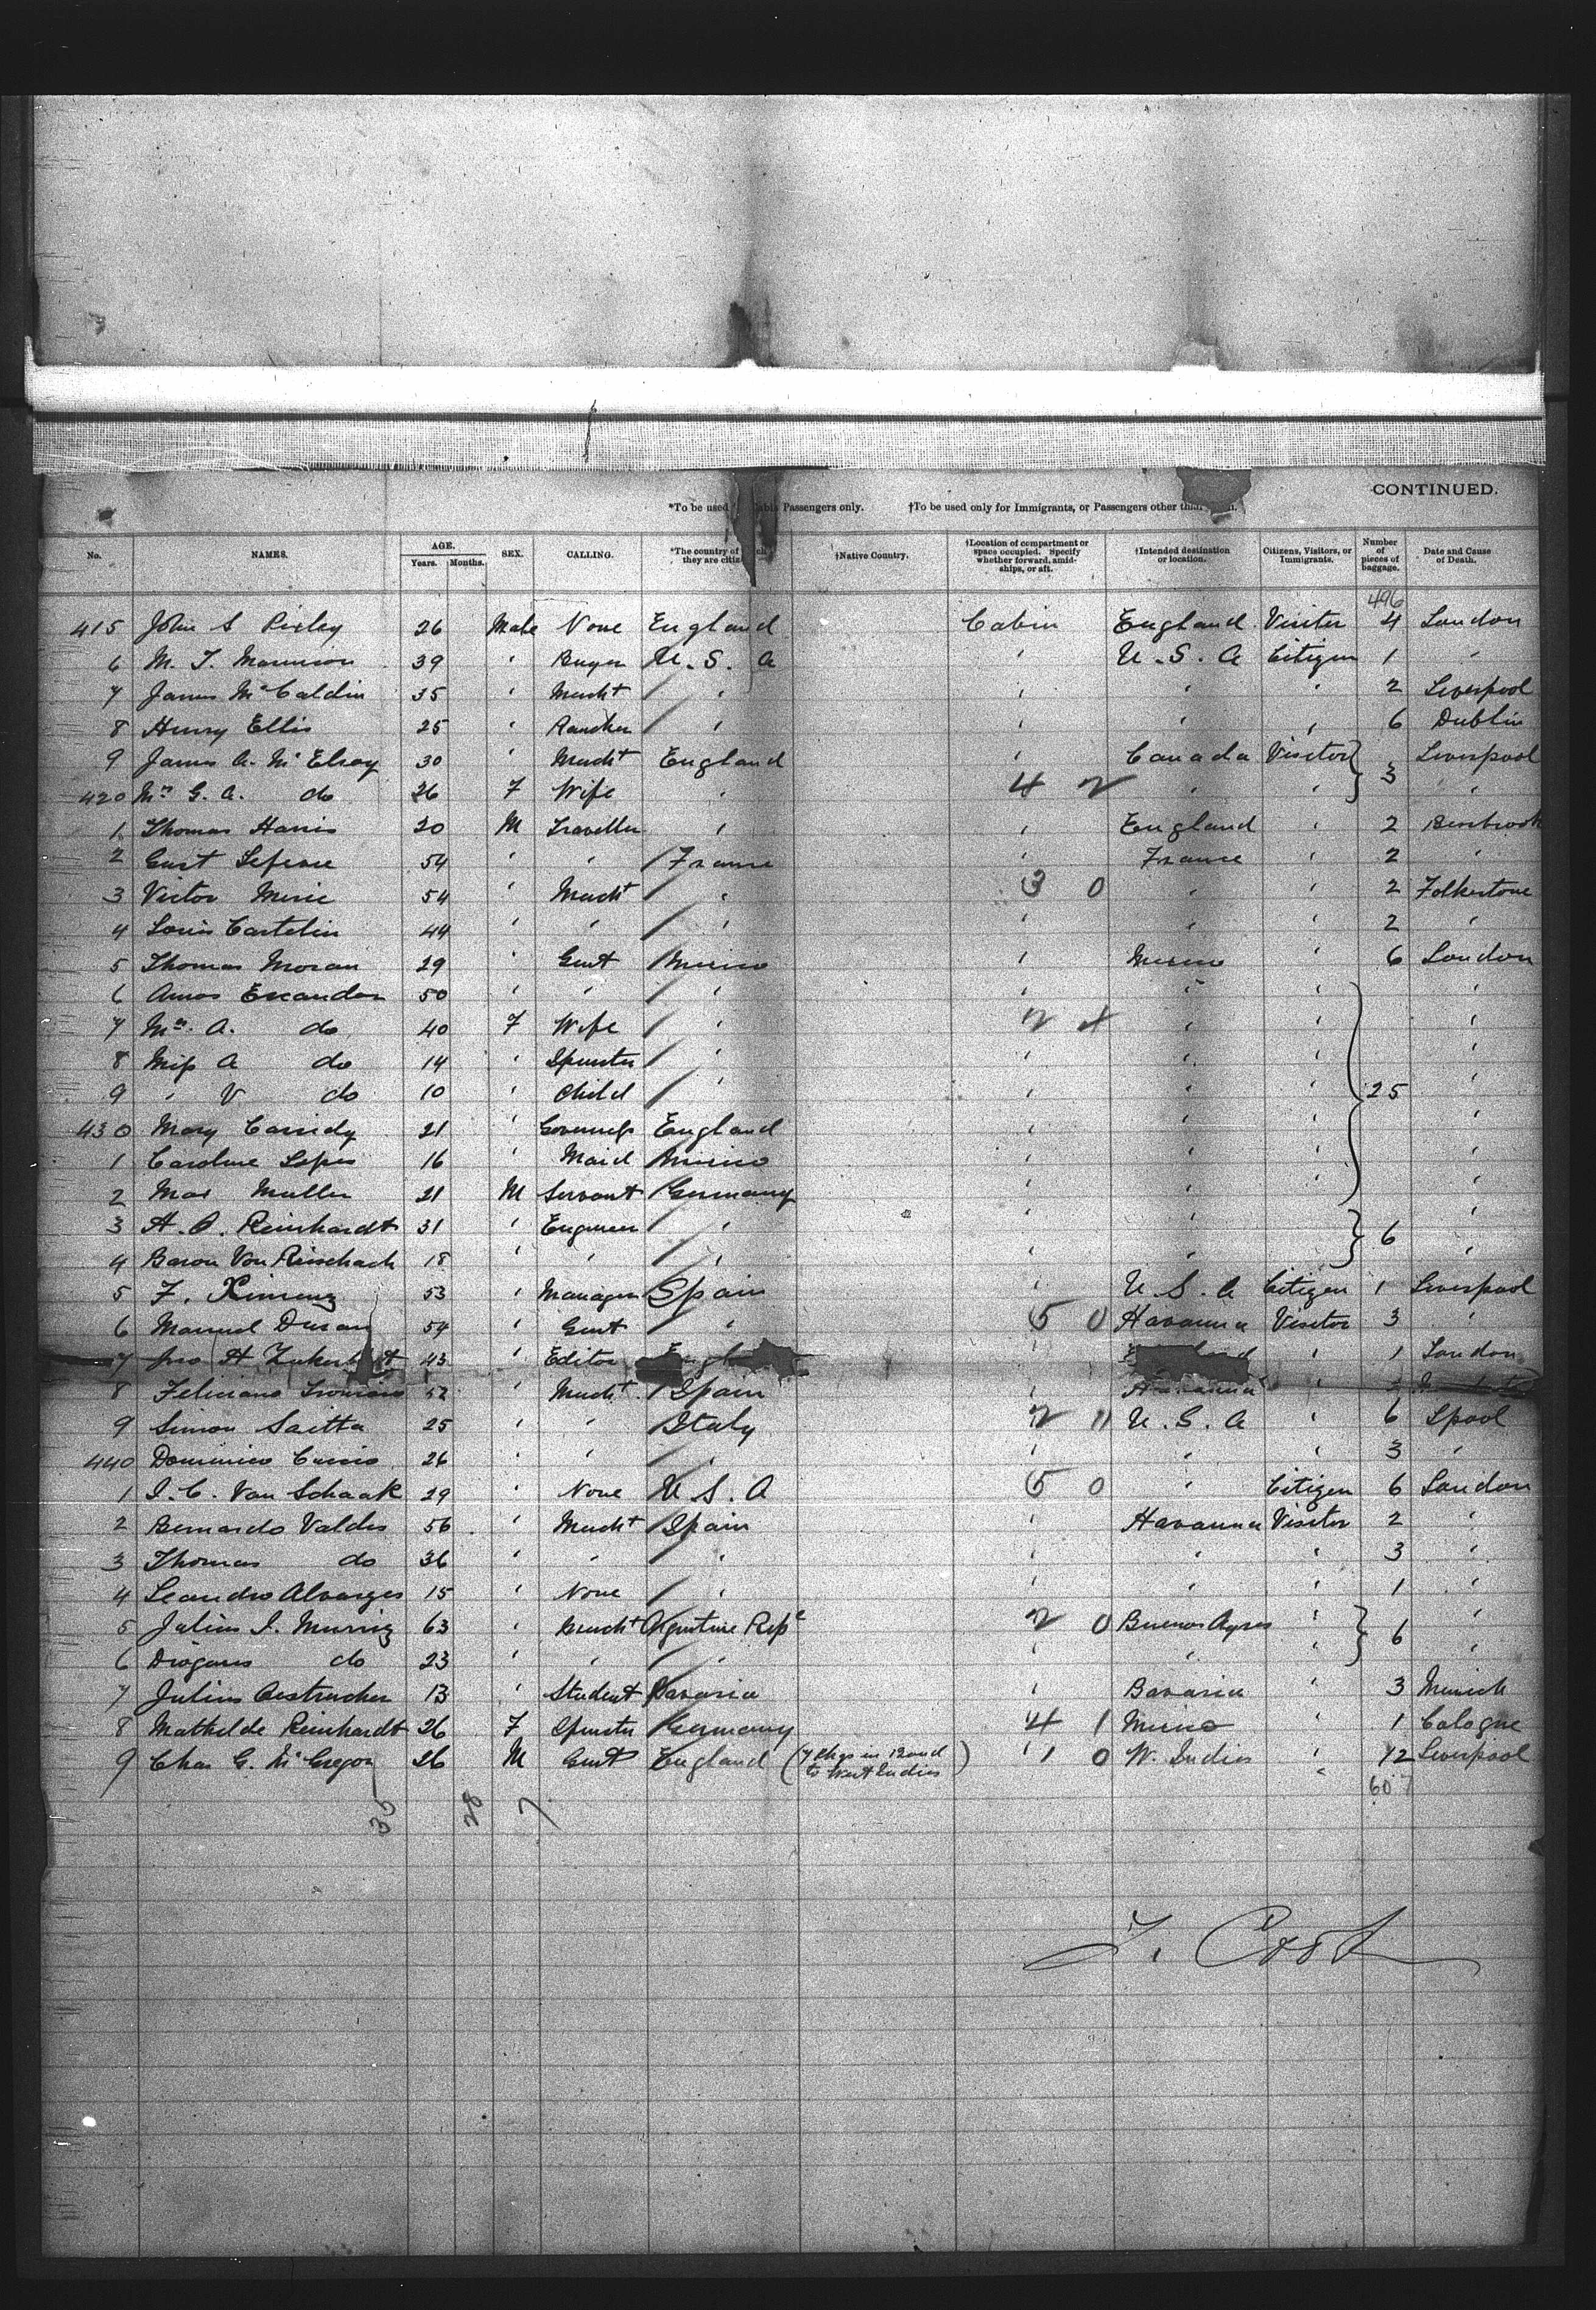 CONTINUED.
*To be used Cabin Passengers only. †To be used only for Immigrants, or Passengers other than
No. NAMES. AGE. Years. Months. SEX. CALLING. *The country of they are citiz †Native Country. †Location of compartment or space occupied. Specify whether forward, amidships, or aft. †Intended destination or location. Citizens, Visitors, or Immigrants. Number of pieces of baggage. Date and Cause of Death.
496
415 John S 26 Male None England Cabin England Visitor 4 London
6 M. 39 ' Buyer U. S. A ' U. S. A Citizen 1 '
7 James McCaldin 35 ' Mercht ' ' ' ' 2 Liverpool
8 Henry Ellis 25 ' Rancher ' ' ' ' 6 Dublin
9 James A. McElroy 30 ' Mercht England ' Canada Visitor 3 Liverpool
420 Mrs G. A. do 26 F Wife ' 4 2 ' ' '
1 Thomas Harris 20 M Traveller ' ' England ' 2
2 54 ' ' France ' France ' 2 '
3 Victor 54 ' Mercht ' 3 0 ' ' 2 Folkestone
4 Louis Castelin 44 ' ' ' ' ' ' 2 '
5 Thomas Moran 29 ' Gent Mexico ' Mexico ' 6 London
6 Escandon 50 ' ' ' ' ' ' '
7 Mrs. A. do 40 F Wife ' 2 4 ' ' '
8 Miss A do 14 ' Spinster ' ' ' ' '
9 ' V do 10 ' Child ' ' ' ' 25 '
430 Mary Cassidy 21 ' Governess England ' ' ' '
1 Caroline Lopes 16 ' Maid Mexico ' ' ' '
2 Max Muller 21 M Servant Germany ' ' ' '
3 A. Reinhardt 31 ' Engineer ' ' ' 6 '
4 Baron Von Reischach 18 ' ' ' ' ' '
5 F. Ximenez 53 ' Manager Spain ' U. S. A Citizen 1 Liverpool
6 Manuel Duran 54 ' Gent ' 5 0 Havanna Visitor 3 '
7 Jno H 43 ' Editor Engl ' ' 1 London
8 Feliciano 52 ' Mercht Spain ' Havanna '
9 Simon Saitta 25 ' ' Italy 2 11 U. S. A ' 6 Lpool
440 Dominico 26 ' ' ' ' ' ' 3 '
1 I. C. Van Schaak 29 ' None U. S. A 5 0 ' Citizen 6 London
2 Bernardo Valdes 56 ' Mercht Spain ' Havanna Visitor 2 '
3 Thomas do 36 ' ' ' ' ' ' 3 '
4 Leandro Alvarges 15 ' None ' ' ' ' 1 '
5 Julius I. 63 ' Mercht Argentine Repc 2 0 Buenos Ayres ' 6 '
6 do 23 ' ' ' ' ' ' '
7 Julius Oestreicher 13 ' Student Bavaria ' Bavaria ' 3 Munich
8 Mathilde Reinhardt 26 F Spinster Germany 4 1 Mexico ' 1 Cologne
9 Chas G. McGregor 26 M Gent England (7 pkgs in Bond to West Indies) ' 1 0 W. Indies ' 12 Liverpool
607
35 28 7